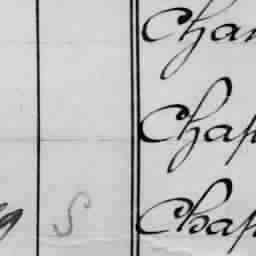 Chan
Chap
S Chap